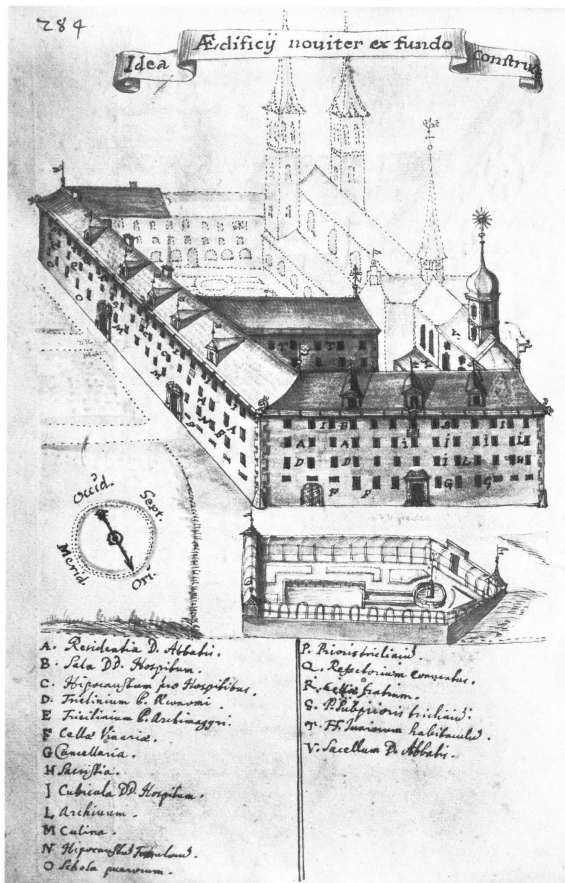 284
Idea Ædificij noviter ex fundo Construct
Occid.
Sept.
Merid.
Ori.
A. Residentia D. Abbatis.
B. Sala DD. Hospitum.
C. Hipocaustum pro Hospitibus.
D. Triclinium P. Œconomi
E Triclinium P. Archimagyri.
F Cellæ Vinariæ.
G Cancellaria.
H Sacristia.
I Cubicula DD. Hospitum.
L Archivum.
M Culina.
N Hipocaustū Famulorū.
O Schola puerorum.
P. Prioris tricliniū.
Q. Refectorium conventus.
R. Cellæ fratrum.
S. P. Subprioris tricliniū.
T. FF. Juniorum habitaculū.
V. Sacellum D. Abbatis.